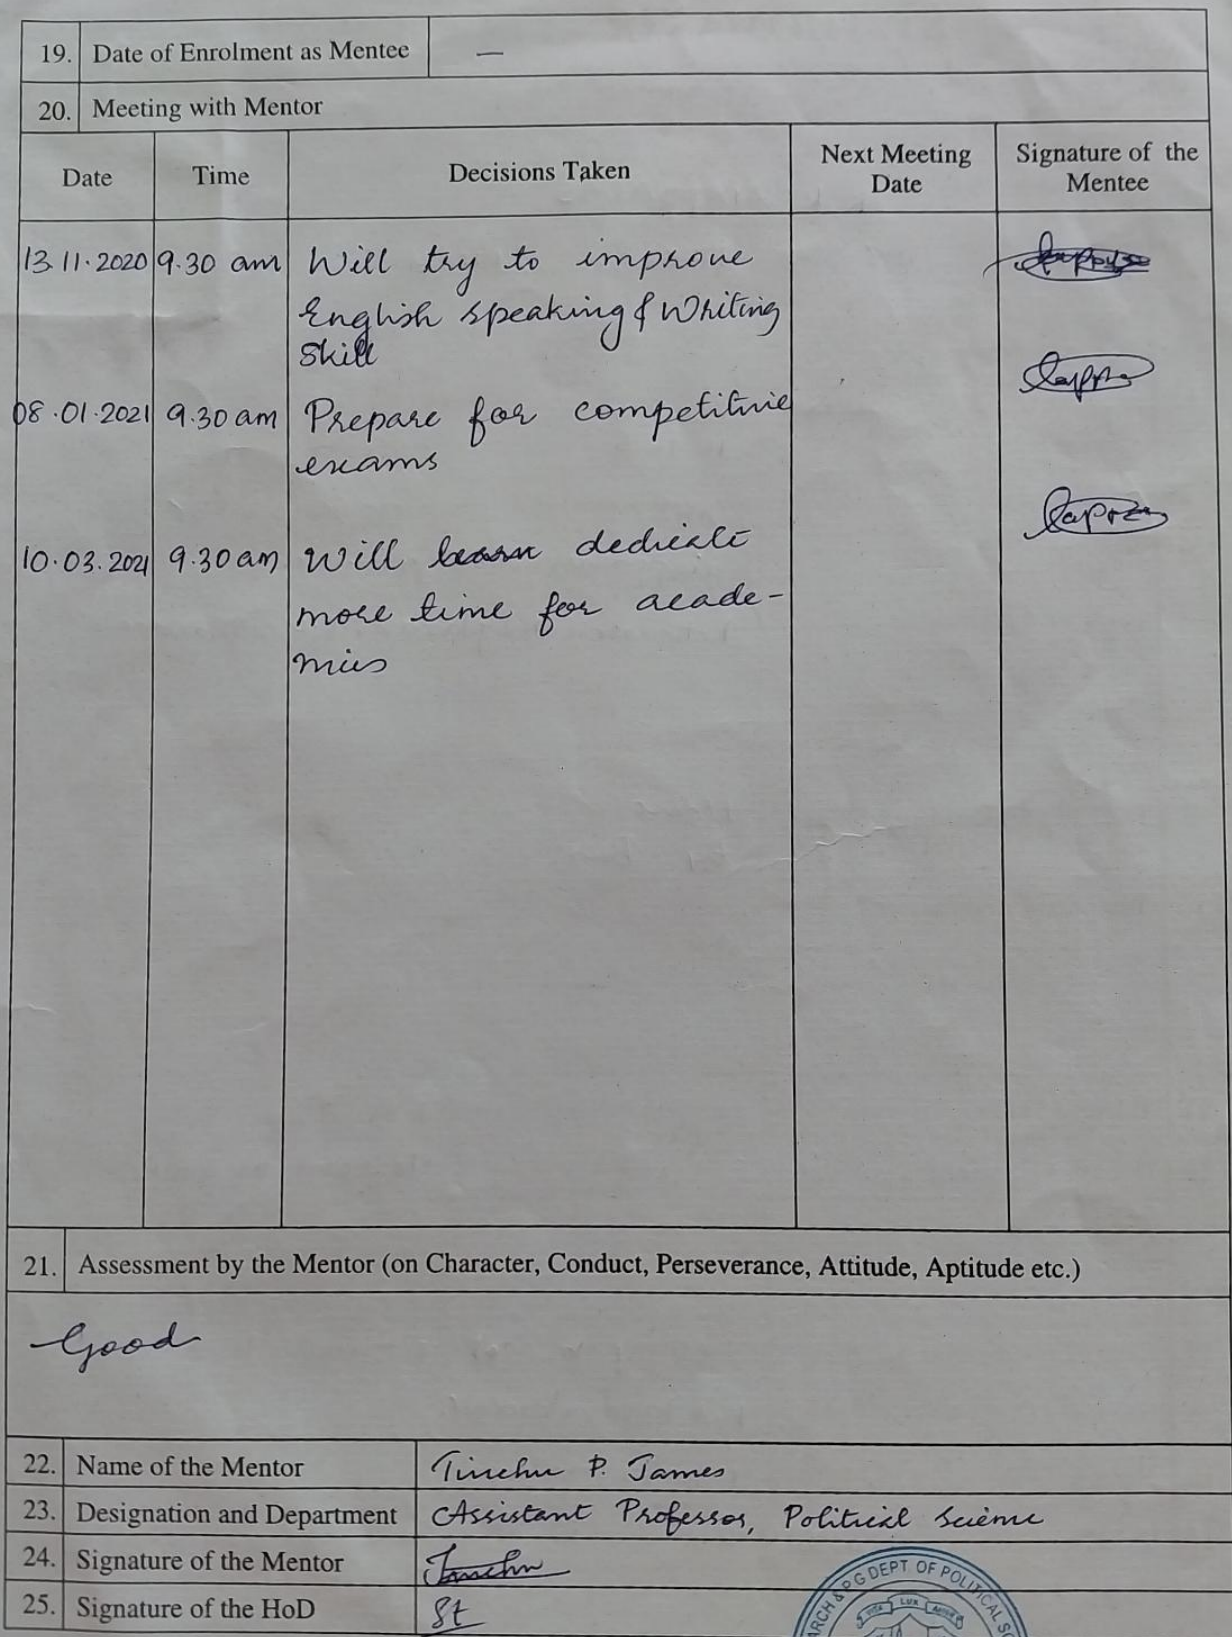 19. Date of Enrolment as Mentee —
20. Meeting with Mentor
Date Time Decisions Taken Next Meeting Date Signature of the Mentee
13.11.2020 9.30 am Will try to improve
English speaking & Writing
Skill
08.01.2021 9.30 am Prepare for competitive
exams
10.03.2021 9.30 am Will dedicate
more time for acade-
mics
21. Assessment by the Mentor (on Character, Conduct, Perseverance, Attitude, Aptitude etc.)
Good
22. Name of the Mentor Tinchu P. James
23. Designation and Department Assistant Professor, Political Science
24. Signature of the Mentor
25. Signature of the HoD
ARCH & P G DEPT OF POLITICAL SC
VITA LUX AMOR